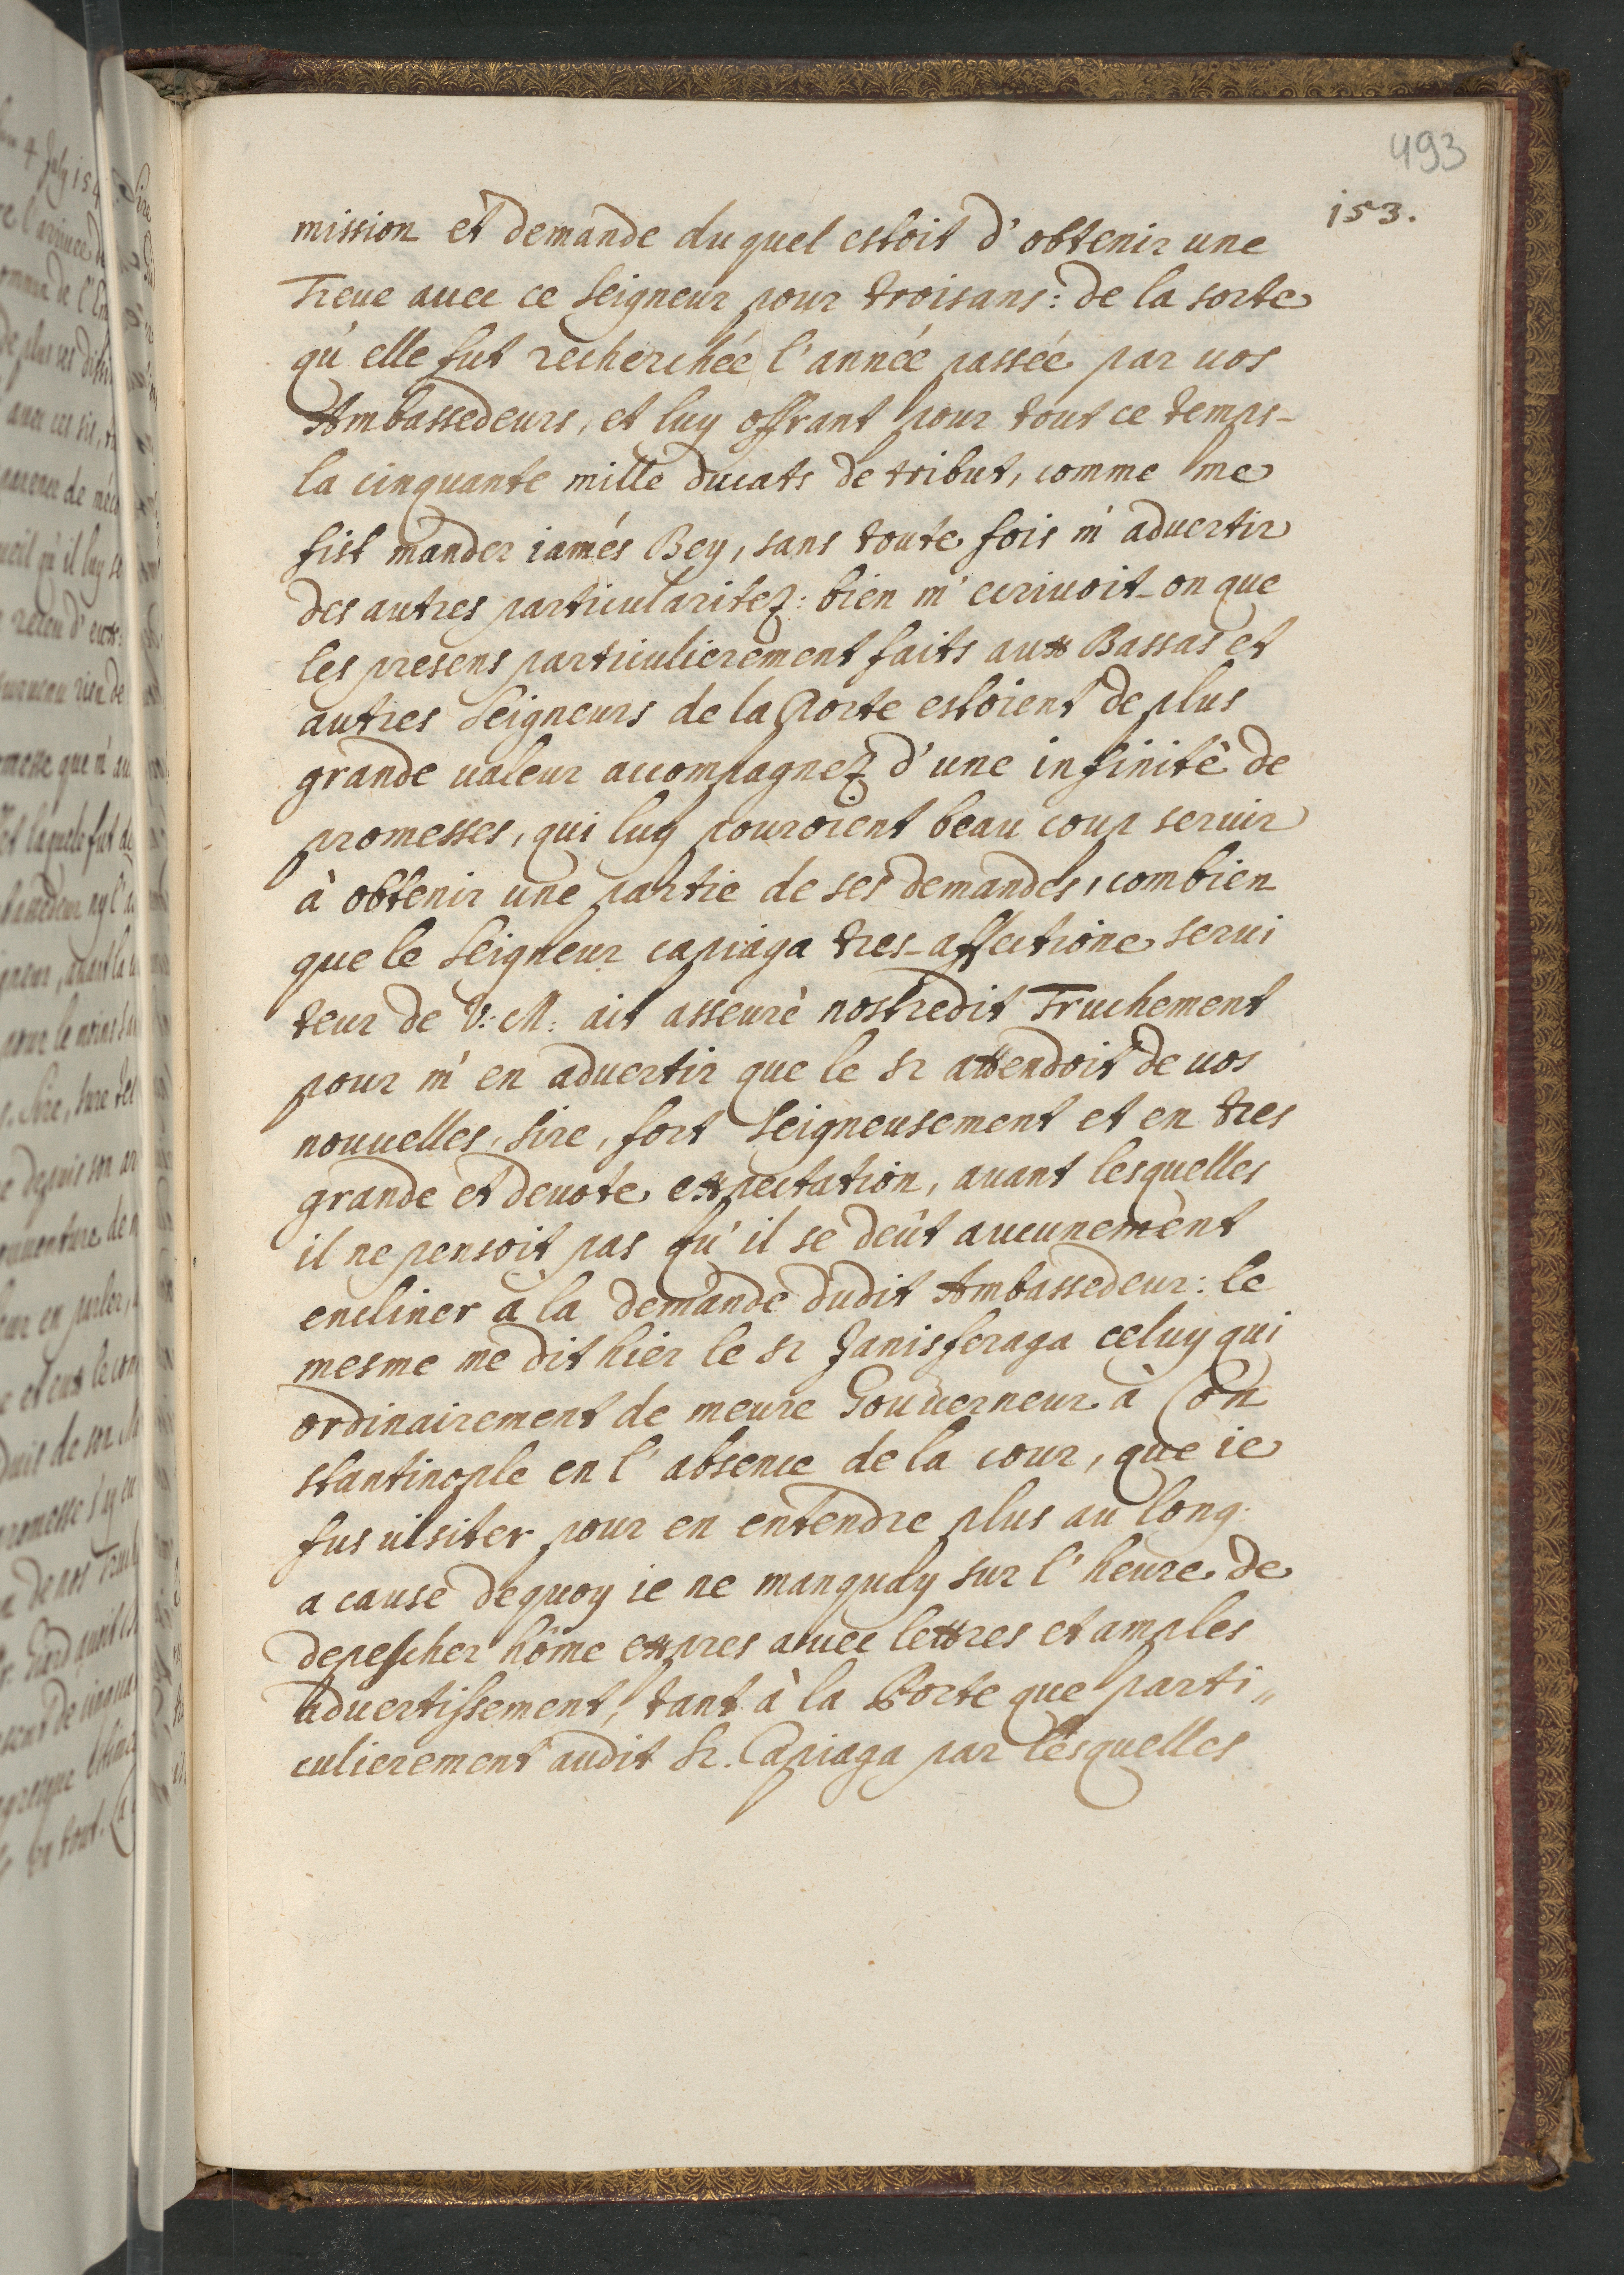 493
153.
mission et demande duquel estoit d'obtenir une
Treue auec ce Seigneur pour troisans: de la sorte
qu'elle fut recherchée l'année passée par uos
Ambassedeurs, et luy offrant pour tout ce temps-
la cinquante mille ducats de tribut, comme me
fist mander iamés Bey, sans toute fois m'aduertir
des autres particularitez: bien m'ecriuoit-on que
les presens particulierement faits aux Bassas et
autres Seigneurs de la Porte estoient de plus
grande ualeur accompagnez d'une infinité de
promesses, qui luy pouroient beau coup seruir
à obtenir une partie de ses demandes, combien
que le Seigneur capiaga tres-affectione serui
teur de V: M: ait asseurè nostredit Truchement
pour m'en aduertir que le Sr attendoit de uos
nouuelles, Sire, fort Seigneusement et en tres
grande et deuote expectation, auant lesquelles
il ne pensoit pas qu'il se deût aucunement
encliner a la demande dudit Ambassedeur: le
mesme me dit hier le Sr Janisferaga celuy qui
ordinairement de meure Gouuerneur à Con
stantinople en l'absence de la cour, que ie
fus uisiter pour en entendre plus au long.
a cause dequoy ie ne manquay sur l'heure de
depescher hôme expres auec lettres et amples
aduertissement, tant à la Porte que parti„
culierement audit Sr. Capiaga par lesquelles